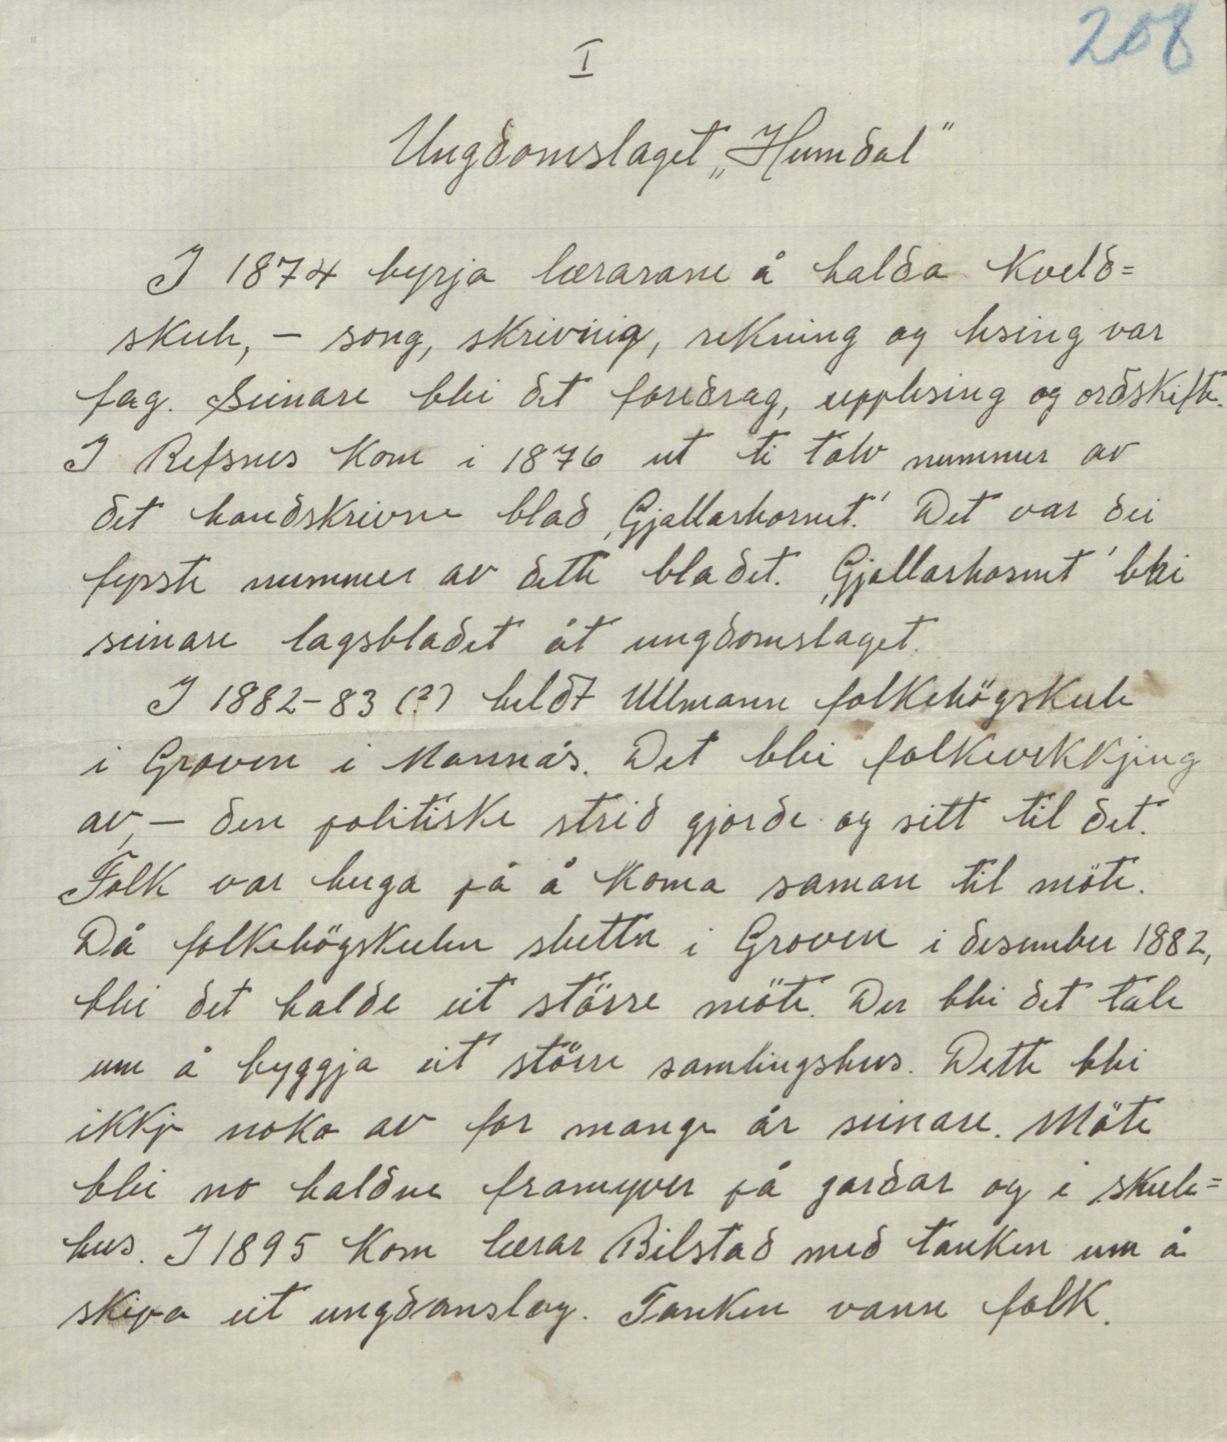 208
I
Ungdomslaget „Humdal"
I 1874 byrja lærarane å halda kveld=
skule, – song, skriving, rekning og lesing var
fag. Seinare blei det foredrag, upplesing og ordskifte.
I Refsnes kom i 1876 ut ti tolv nummer av
det handskrivne blad ‚Gjallarhornet.' Det var dei
fyrste nummer av dette bladet. ‚Gjallarhornet' blei
seinare lagsbladet åt ungdomslaget.
I 1882-83 (?) heldt Ullmann folkehögskule
i Groven i Mannås. Det blei folkevekkjing
av, – den politiske strid gjorde og sitt til det.
Folk var huga på å koma saman til möte.
Då folkehögskulen slutta i Groven i desember 1882,
blei det halde eit större möte. Der blei det tale
um å byggja eit större samlingshus. Dette blei
ikkje noko av for mange år seinare. Möte
blei no haldne frameyver på gardar og i skule=
hus. I 1895 kom lærar Bilstad med tanken um å
skipa eit ungdomslag. Tanken vann folk.